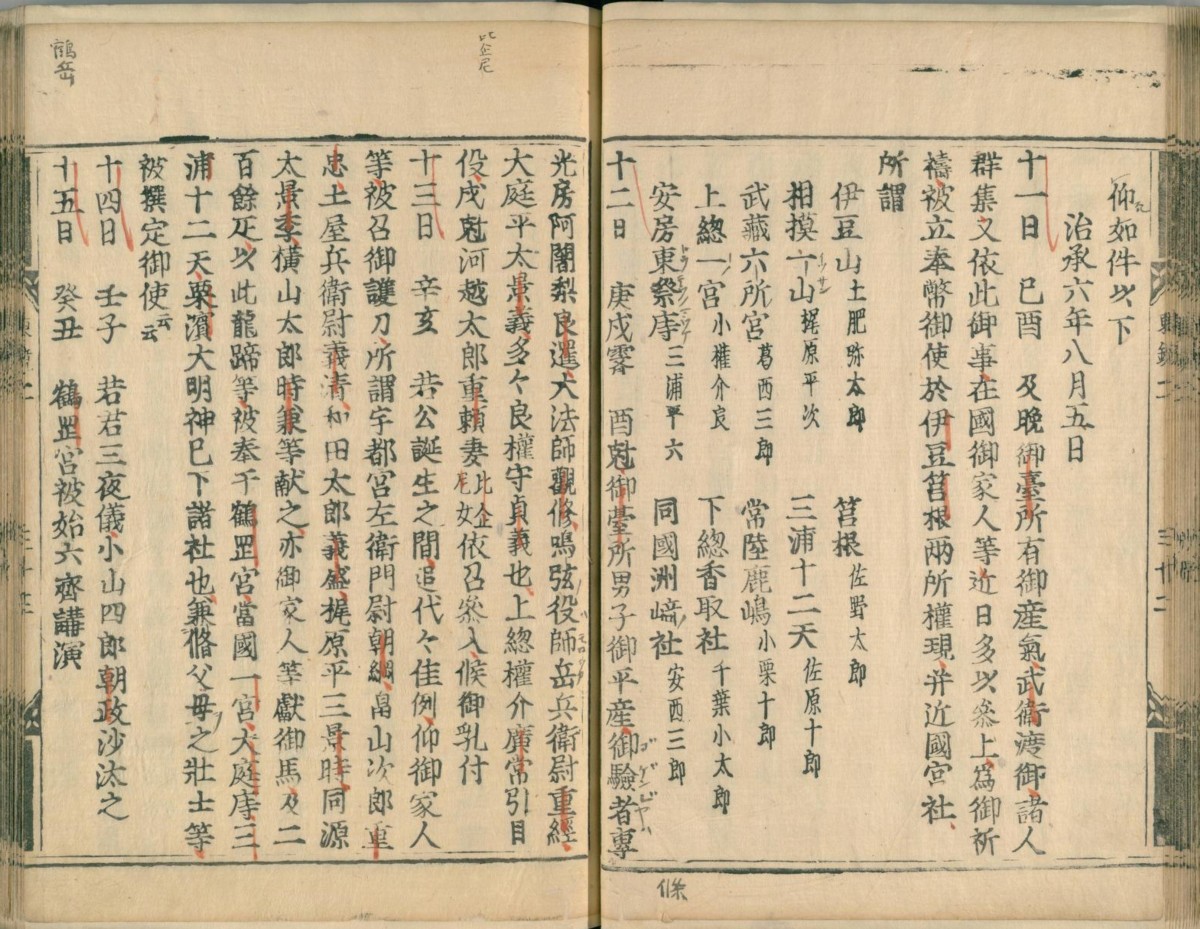 仰如件以下
治承六年八月五日
十一日 己酉 及晩御臺所有御産氣武衛渡御諸人
群集又依此御事在國御家人等近日多以參上爲御祈
禱被立奉幣御使於伊豆筥根兩所權現并近國宮社
所謂
伊豆山土肥弥太郎 筥根佐野太郎
相摸一山梶原平次 三浦十二天佐原十郎
武藏六所宮葛西三郎 常陸鹿嶋小栗十郎
上總一宮小權介良 下總香取社千葉小太郎
安房東祭庤三浦平六 同國洲﨑社安西三郎
十二日 庚戌霽 酉尅御臺所男子御平産御驗者專
光房阿闍梨良暹大法師觀修鳴弦役師岳兵衛尉重經
大庭平太景義多々良權守貞義也上總權介廣常引目
役戌尅河越太郎重頼妻比企尼女依召參入候御乳付
十三日 辛亥 若公誕生之間追代々佳例仰御家人
等被召御護刀所謂宇都宮左衛門尉朝綱畠山次郎重
忠土屋兵衛尉義清和田太郎義盛梶原平三景時同源
太景季橫山太郎時兼等献之亦御家人等獻御馬及二
百餘疋以此龍蹄等被奉于鶴罡宮當國一宮大庭庤三
浦十二天栗濱大明神已下諸社也兼俻父母之壯士等
被撰定御使云云
十四日 壬子 若君三夜儀小山四郎朝政沙汰之
十五日 癸丑 鶴罡宮被始六齊講演
比企尼
鶴岳
條